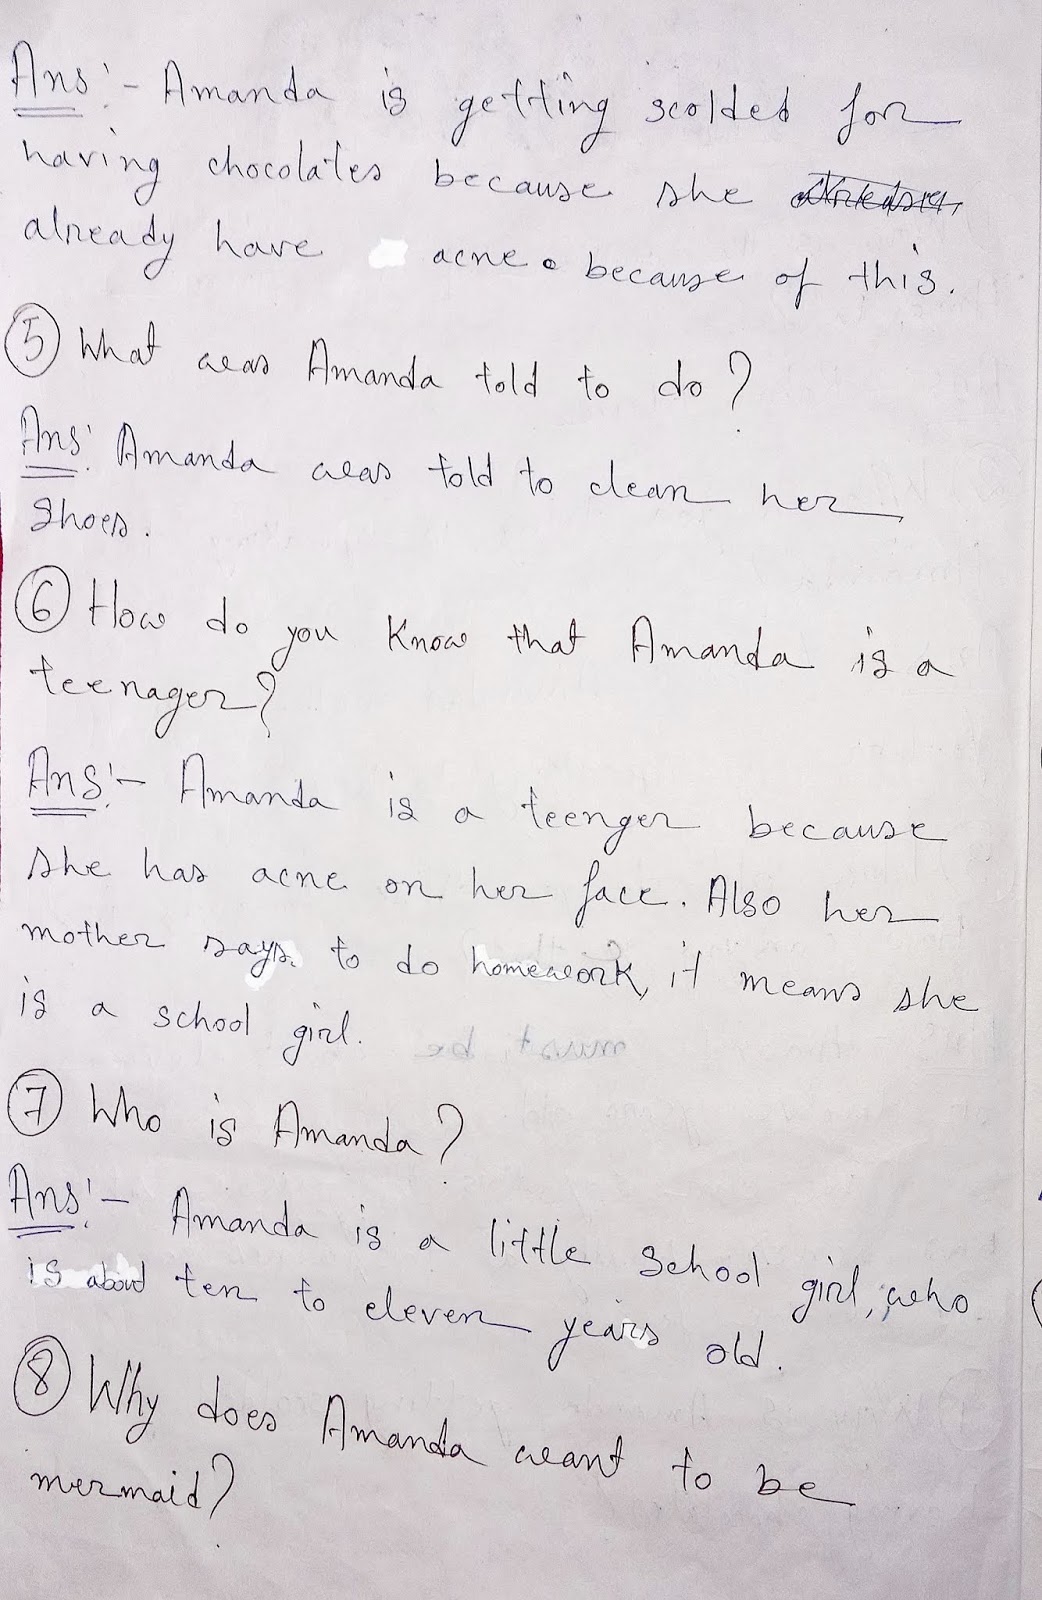 Ans:- Amanda is getting scolded for
having chocolates because she
already have acne. because of this.
5 What was Amanda told to do?
Ans: Amanda was told to clean her
shoes.
6 How do you know that Amanda is a
teenager?
Ans:- Amanda is a teenger because
she has acne on her face. Also her
mother says to do homework, it means she
is a school girl.
7 Who is Amanda?
Ans:- Amanda is a little school girl, who
is about ten to eleven years old.
8 Why does Amanda want to be
mermaid?